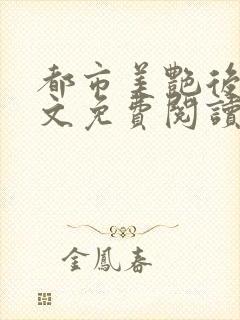 都市美艷後
文免費閱讀
金鳳春